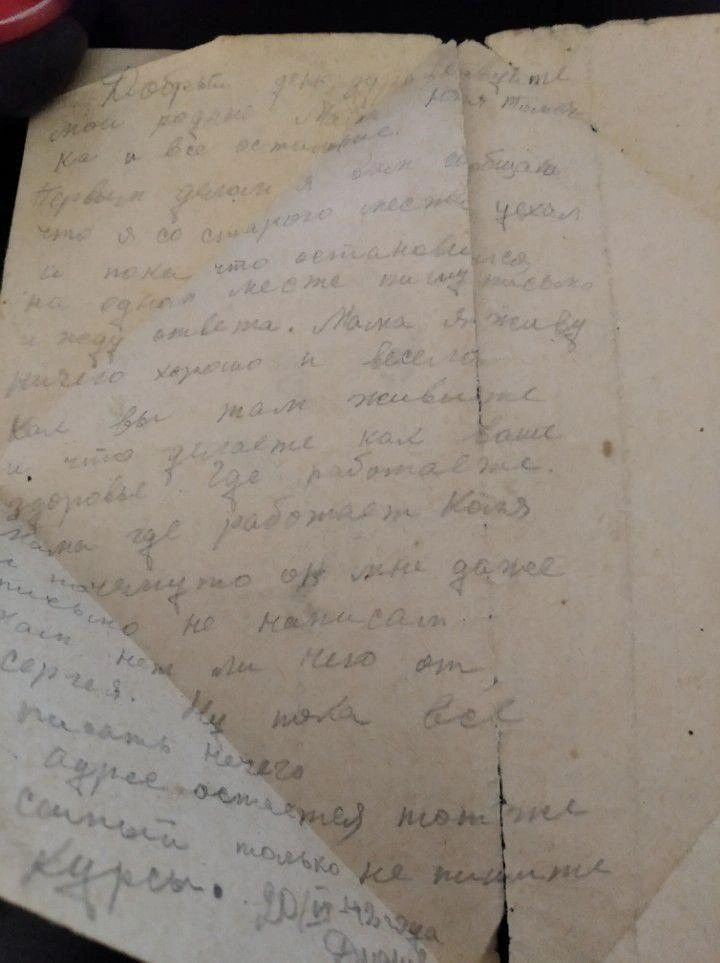 Добрый день здравствуйте
мои родные Мама Коля Томоч
ка и все остальные.
Первым делом я вам сообщаю
что я со старого места уехал
и пока что остановился
на одном месте пишу письмо
и жду ответа. Мама я живу
ничего хорошо и весело
Как вы там живыте
и что делаете как ваше
здоровье. Где работаете.
мама где работает Коля
и почемуто он мне даже
письмо не написал.
нет ли чего от
сергея. Ну пока всё
писать нечего
Адрес остается тот же
самый только не пишите
Курсы. 20/VI 42 года